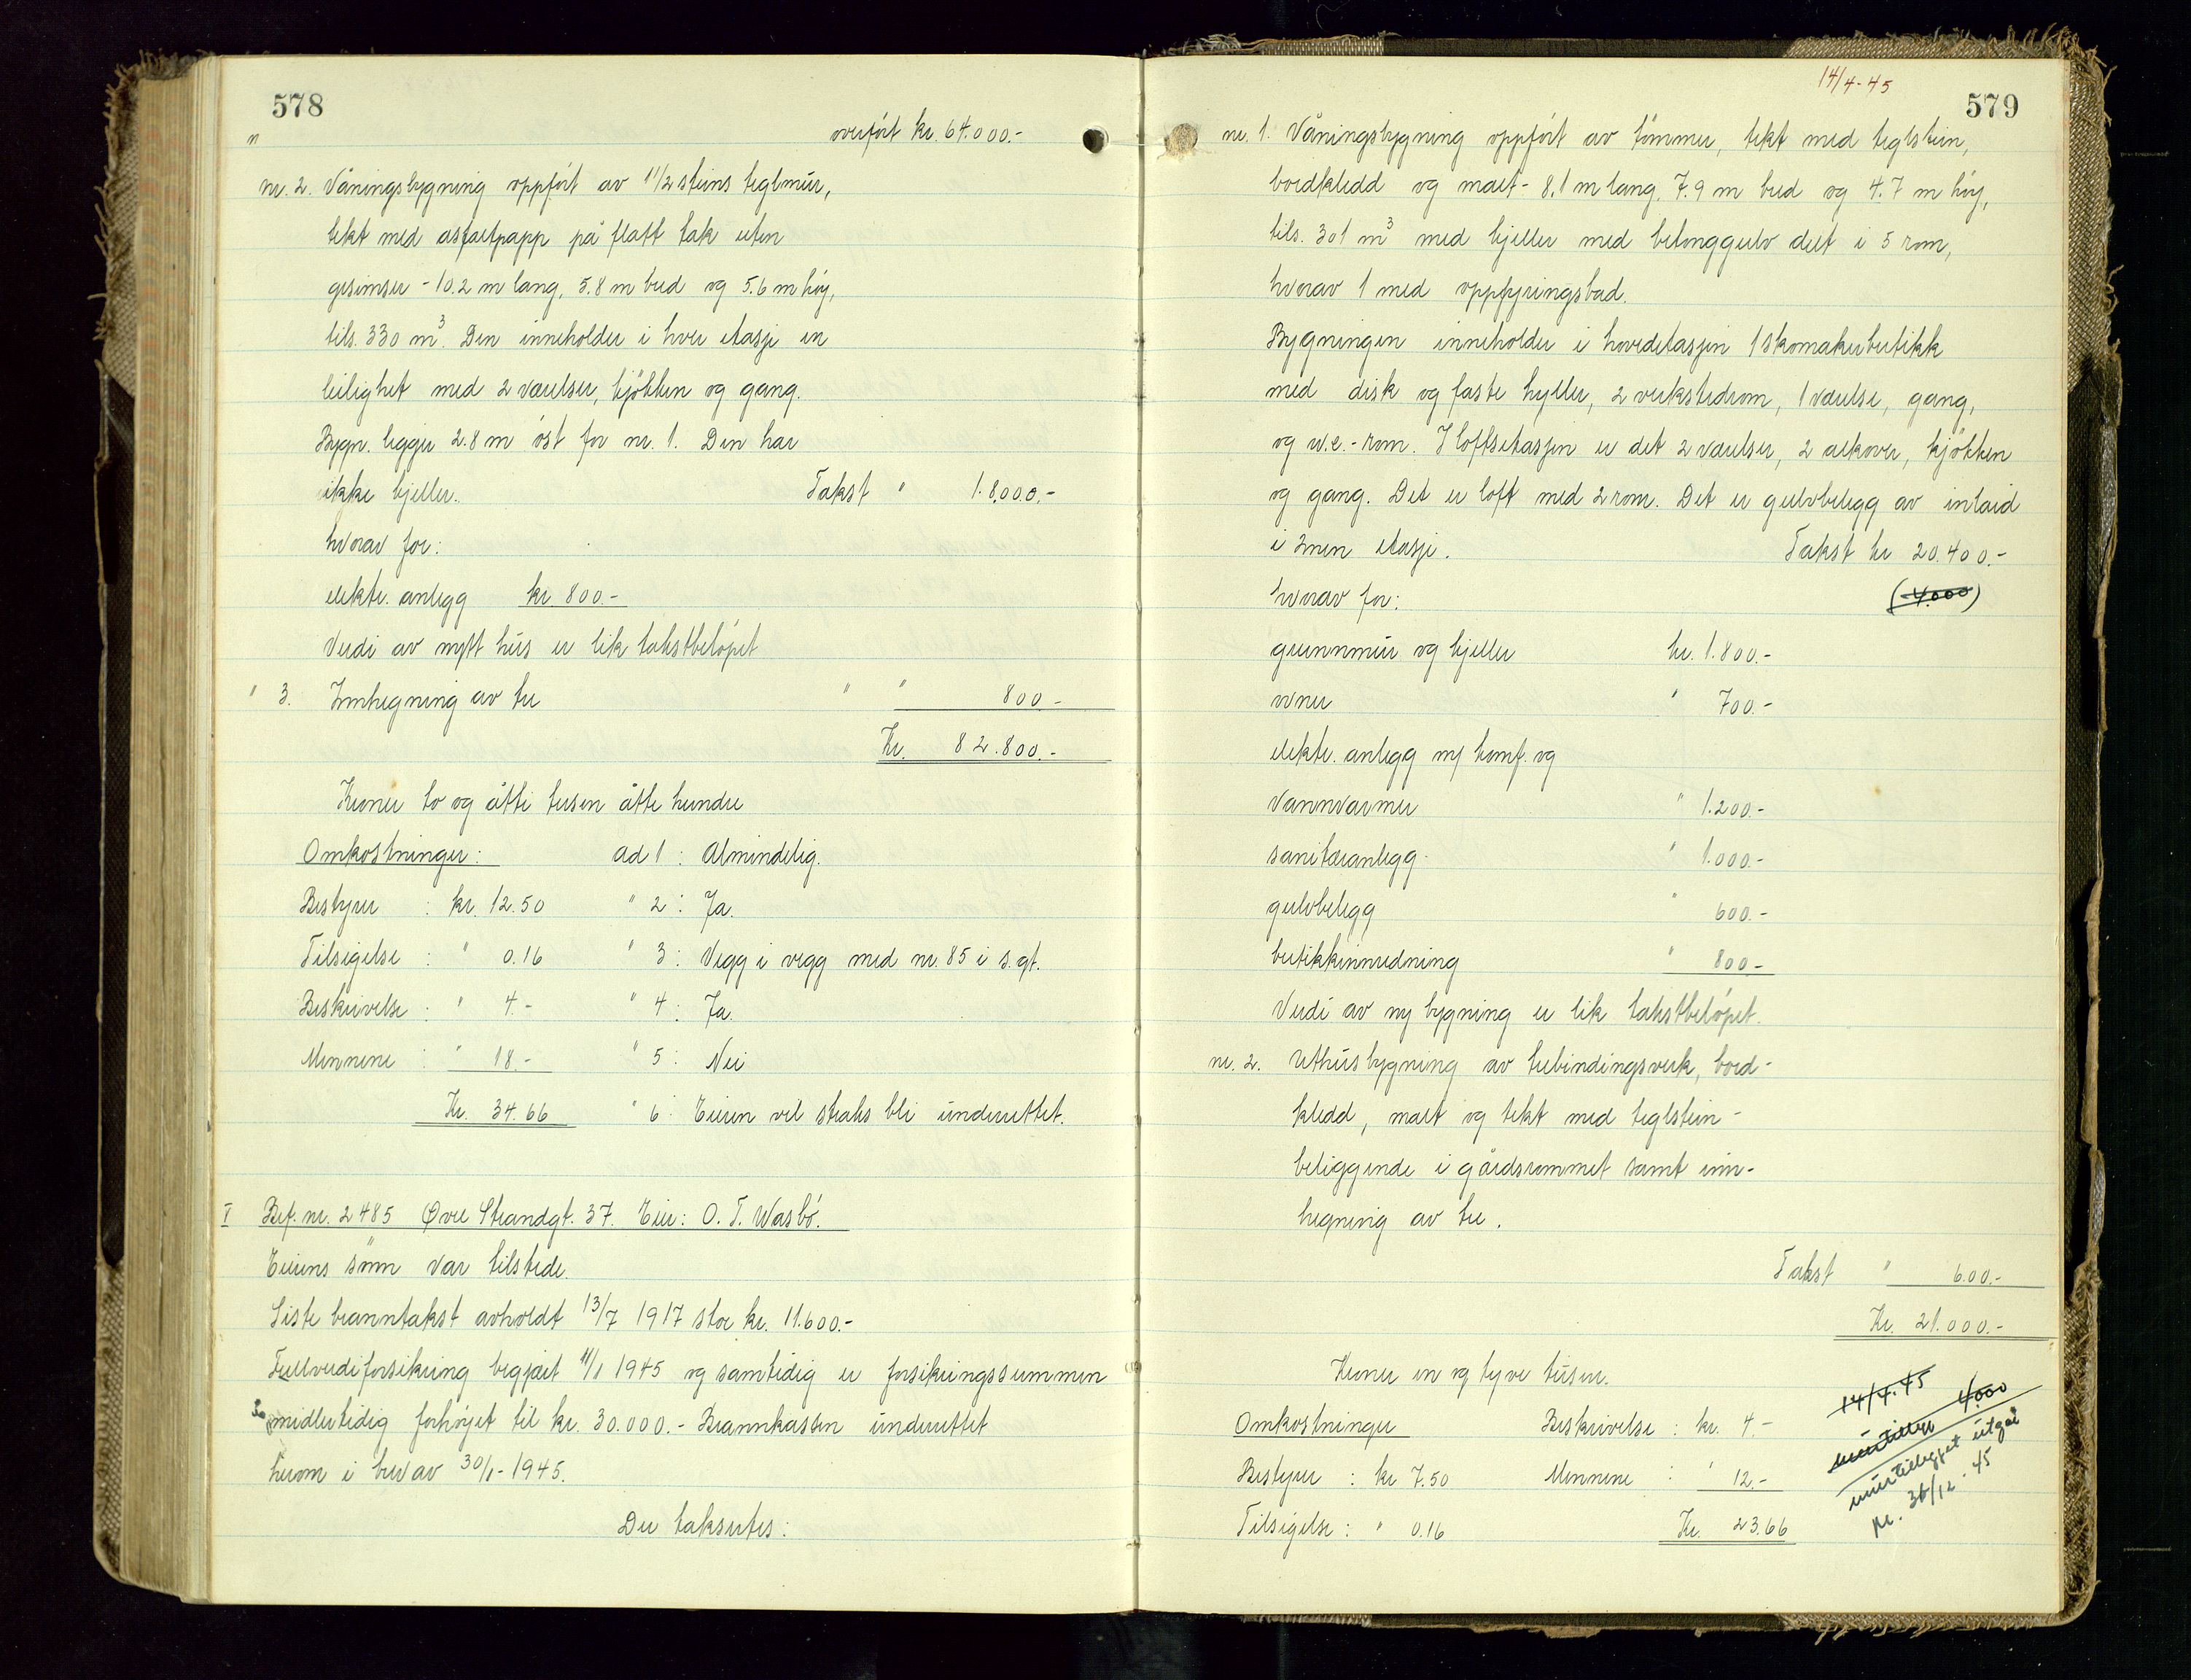 578
overført kr. 64.000.-
nr. 2. Våningsbygning oppført av 1 1/2 steins teglmur,
tekt med asfaltpapp på flatt tak uten
gesimser - 10.2 m lang, 5.8 m bred og 5.6 m høy,
tils. 330 m³. Den inneholder i hver etasje en
leilighet med 2 værelser, kjøkken og gang.
Bygn. ligger 2.8 m øst for nr. 1. Den har
ikke kjeller. Takst " 18.000.-
hvorav for:
elektr. anlegg kr 800.-
Verdi av nytt hus er lik takstbeløpet
" 3. Innhegning av tre " " 800.-
Kr. 82.800.-
Kroner to og åtti tusen åtte hundre
Omkostninger: ad 1 : Almindelig.
Bestyrer : kr. 12.50 " 2 : Ja.
Tilsigelse : " 0.16 " 3 : Vegg i vegg med nr. 85 i s. gt.
Beskrivelse : " 4.- " 4 : Ja.
Mennene : " 18.- " 5 : Nei
Kr. 34.66 " 6 : Eieren vil straks bli underrettet.
I Brf. nr. 2485 Øvre Strandgt. 37. Eier: O. T. Wasbø.
Eierens sønn var tilstede.
Siste branntakst avholdt 13/7 1917 stor kr. 11.600.-
Fullverdiforsikring begjært 11/1 1945 og samtidig er forsikringssummen
midlertidig forhøyet til kr. 30.000.- Brannkassen underrettet
herom i brev av 30/1-1945.
Der takseres:
14/4-45
579
nr. 1. Våningsbygning oppført av tømmer, tekt med teglstein,
bordkledd og malt - 8.1 m lang, 7.9 m bred og 4.7 m høy,
tils. 301 m³ med kjeller med betonggulv delt i 5 rom,
hvorav 1 med oppfyringsbad.
Bygningen inneholder i hovedetasjen 1 skomakerbutikk
med disk og faste hyller, 2 verkstedrom, 1 værelse, gang,
og w.c.-rom. I loftsetasjen er det 2 værelser, 2 alkover, kjøkken
og gang. Det er loft med 2 rom. Det er gulvbelegg av inlaid
i 2nen etasje. Takst kr 20.400.-
hvorav for: (4.000)
grunnmur og kjeller kr. 1.800.-
ovner " 700.-
elektr. anlegg m/ komf. og
vannvarmer " 1.200.-
sanitæranlegg " 1.000.-
gulvbelegg " 600.-
butikkinnredning " 800.-
Verdi av ny bygning er lik takstbeløpet.
nr. 2. Uthusbygning av trebindingsverk, bord-
kledd, malt og tekt med teglstein -
beliggende i gårdsrommet samt inn-
hegning av tre.
Takst " 600.-
Kr. 21.000.-
Kroner en og tyve tusen.
Omkostninger Beskrivelse : kr. 4.-
Bestyrer : kr 7.50 Mennene : " 12.-
Tilsigelse : " 0.16 Kr. 23.66
14/4.45
murtillegg 4.000
murtillegget utgår
pr. 31/12-45